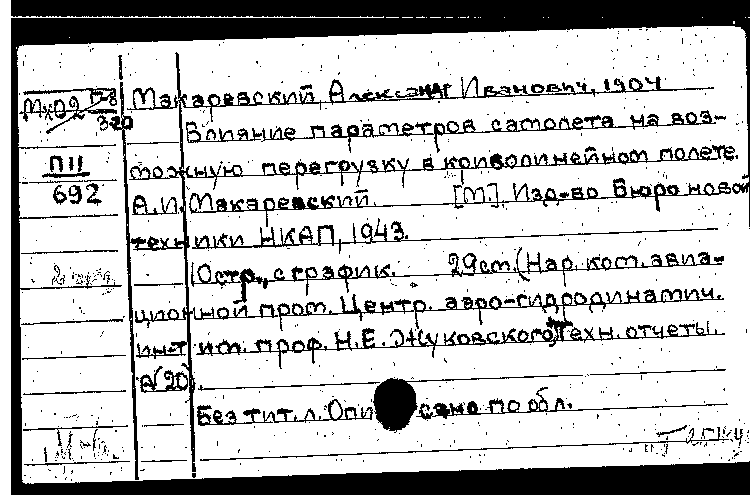 Макаревский, Александр Иванович, 1904
Влияние параметров самолета на воз-
можную перегрузку в криволинейном полете.
А.И. Макаревский. [М] Изд-во Бюро новой
техники НКАП, 1943.
10стр., с график. 29см. (Нар. ком. авиа-
ционной пром. Центр. аэро-гидродинамич.
ин-т им. проф. Н.Е. Жуковского, Техн. отчеты.
№20).
Без тит. л. Описано по обл.
МХ02 П-8
320
П11
692